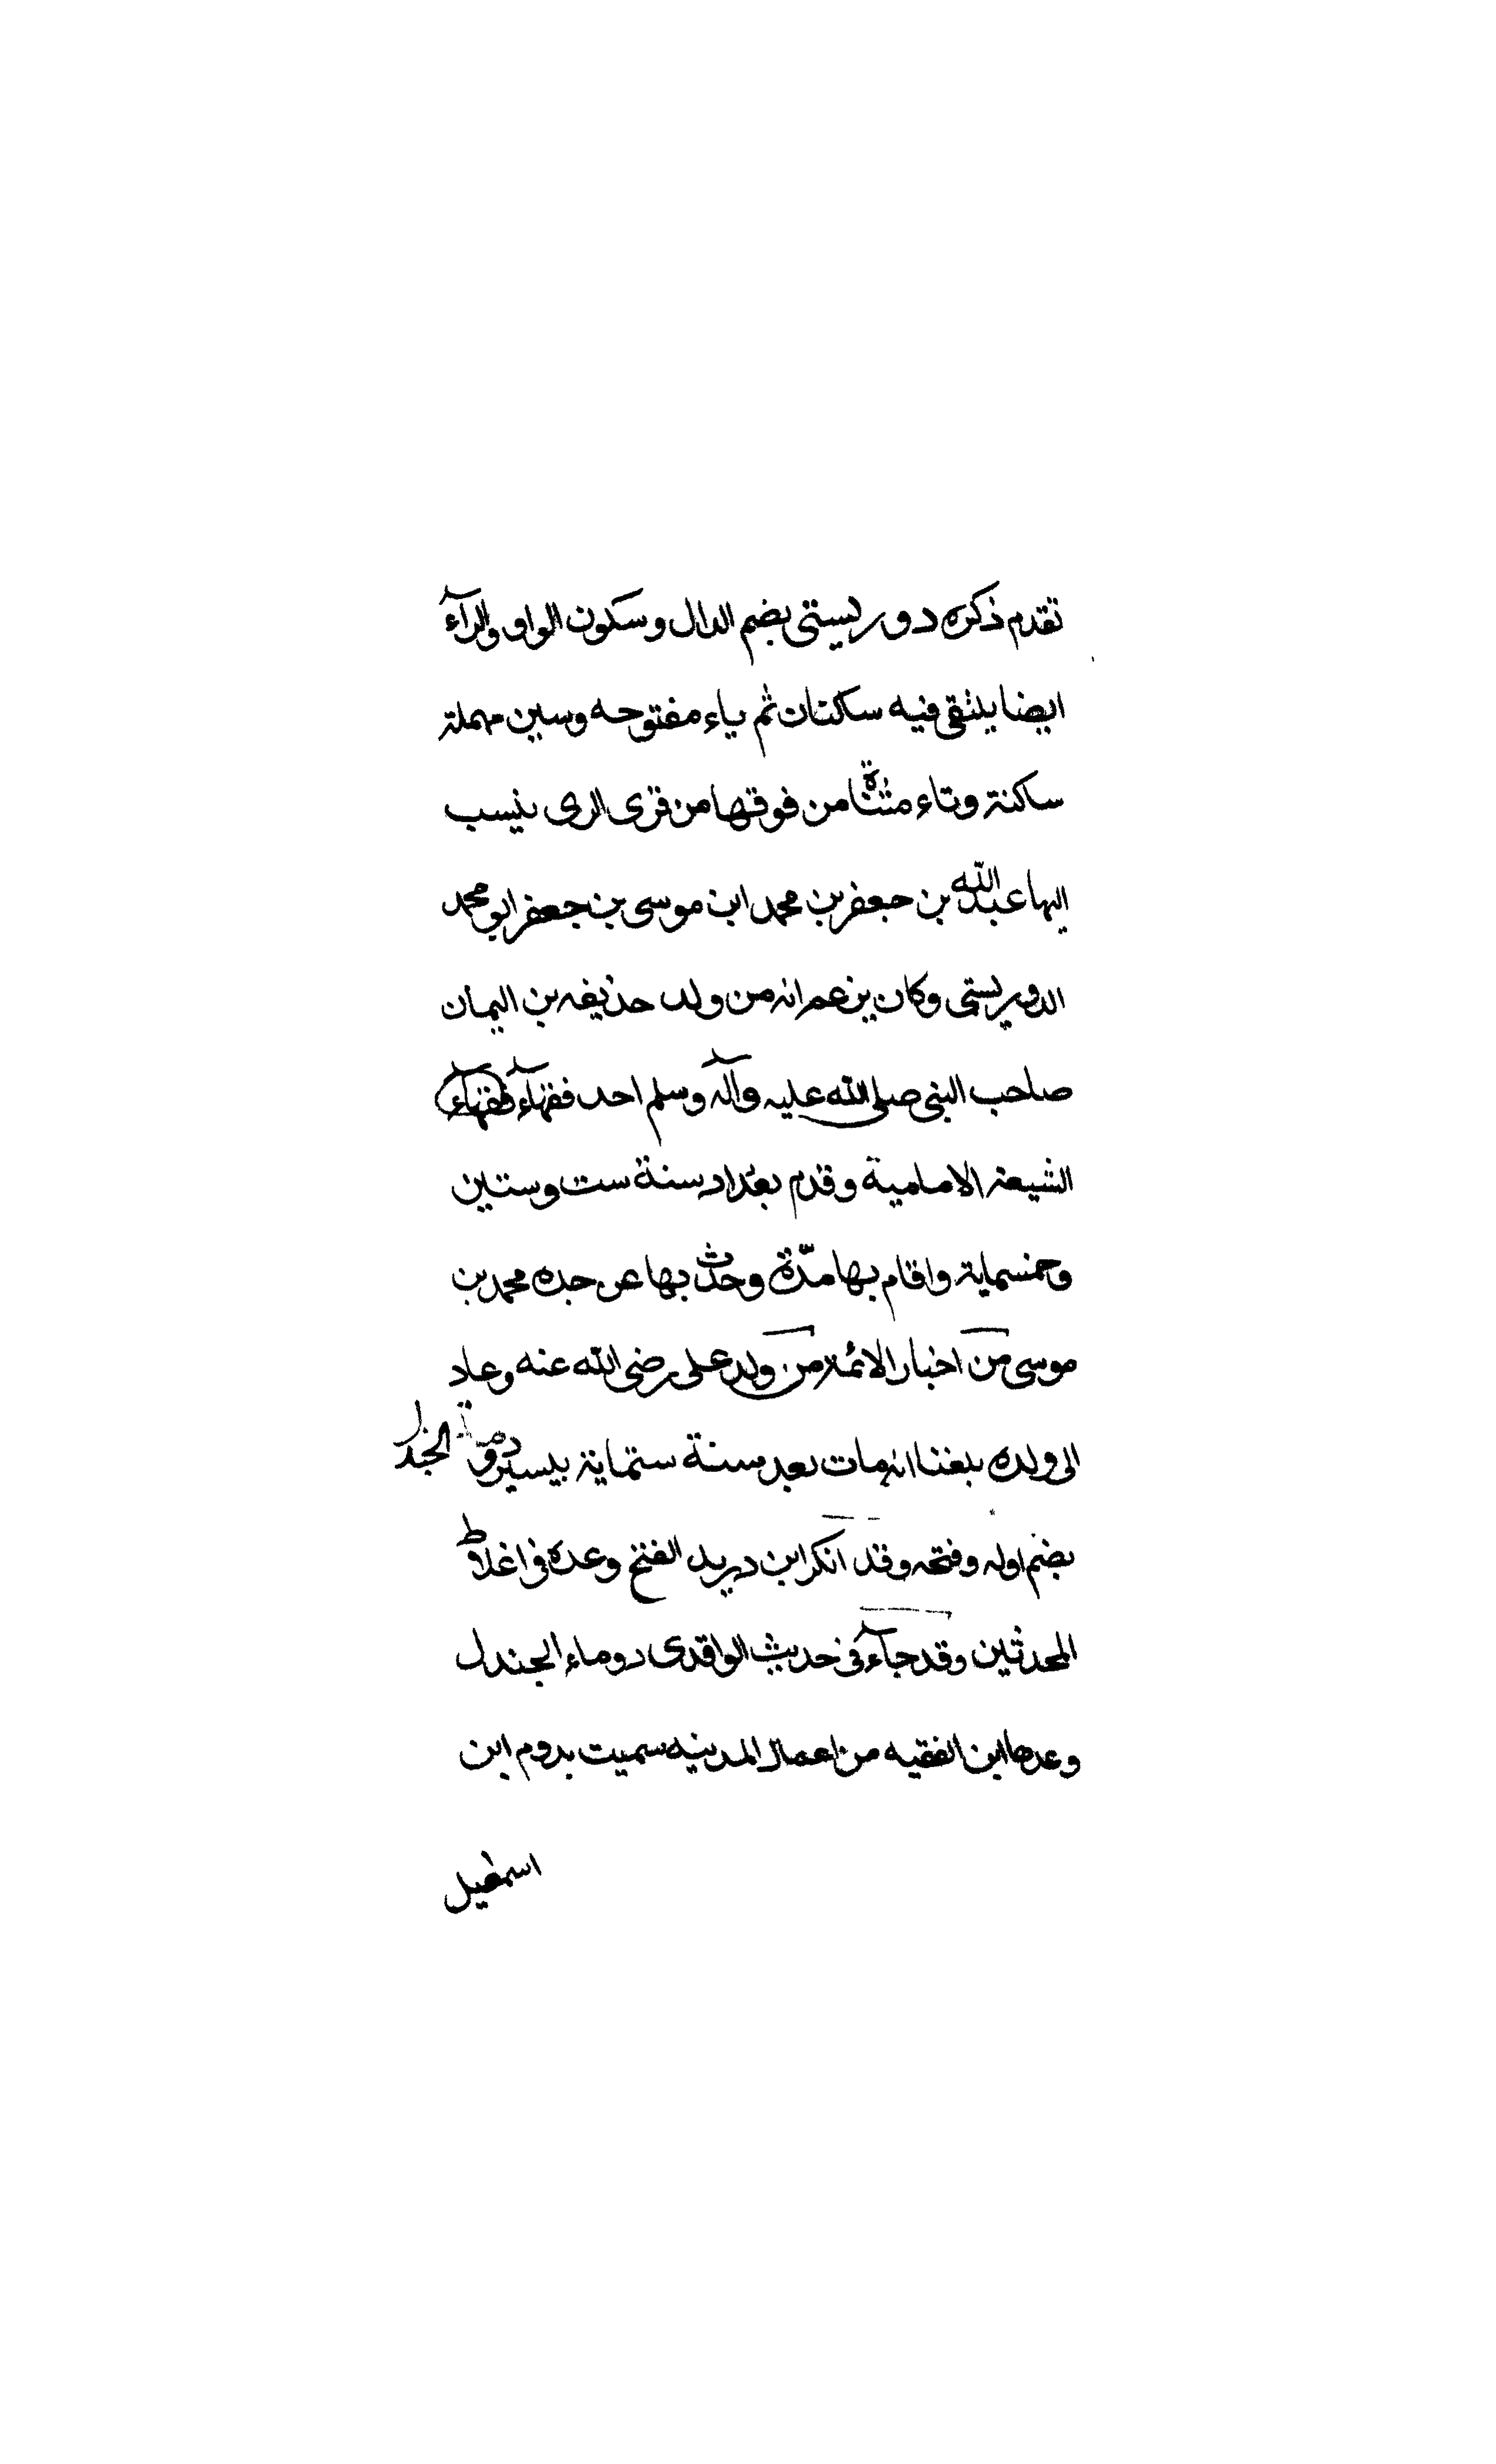 تقدم ذكره دوريستى بضم الدال وسكون الواو والرآء
ايضا يلتقى فيه ساكنان ثم ياء مفتوحه وسين مهملة
ساكنة وتاء مثناة من فوقها من قرى الرى ينسب
اليها عبد الله بن جعفر بن محمد ابن موسى بن جعفر ابو محمد
الدوريستى وكان يزعم انه من ولد حذيفه بن اليمان
صاحب النبى صلى الله عليه وآله وسلم احد فقهآء فقهآء
الشيعة الامامية وقدم بغداد سنة ست وستين
وخمسماية واقام بها مدّة وحدث بها عن جده محمد بن
موسى من اخبار الائمة من ولد على رضى الله عنه وعاد
الى ولده بلغنا انه مات بعد سنة ستماية بيسير دومة الجندل
بضم اوله وفتحه وقد انكر ابن دريد الفتح وعده فى اغلاط
المحدثين وقد جآء فى حديث الواقدى دوماء الجندل
وعدها ابن الفقيه من اعمال المدينه سميت بدوم ابن
اسمعيل